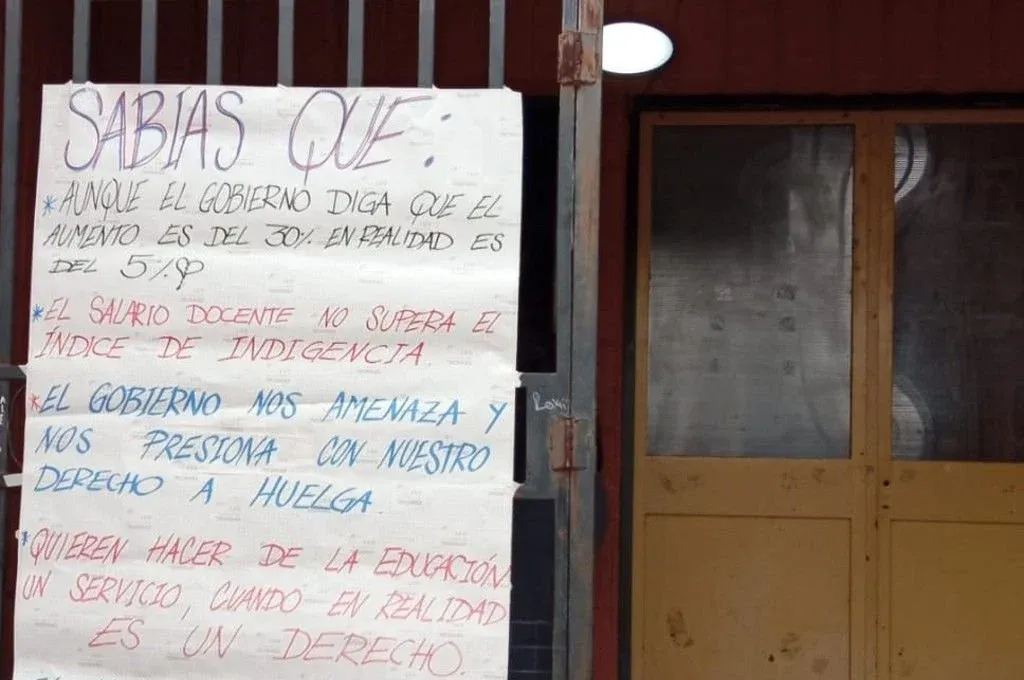 SABIAS QUE:
*AUNQUE EL GOBIERNO DIGA QUE EL
AUMENTO ES DEL 30% EN REALIDAD ES
DEL 5%
*EL SALARIO DOCENTE NO SUPERA EL
ÍNDICE DE INDIGENCIA.
*EL GOBIERNO NOS AMENAZA Y
NOS PRESIONA CON NUESTRO
DERECHO A HUELGA.
*QUIEREN HACER DE LA EDUCACIÓN
UN SERVICIO, CUANDO EN REALIDAD
ES UN DERECHO.